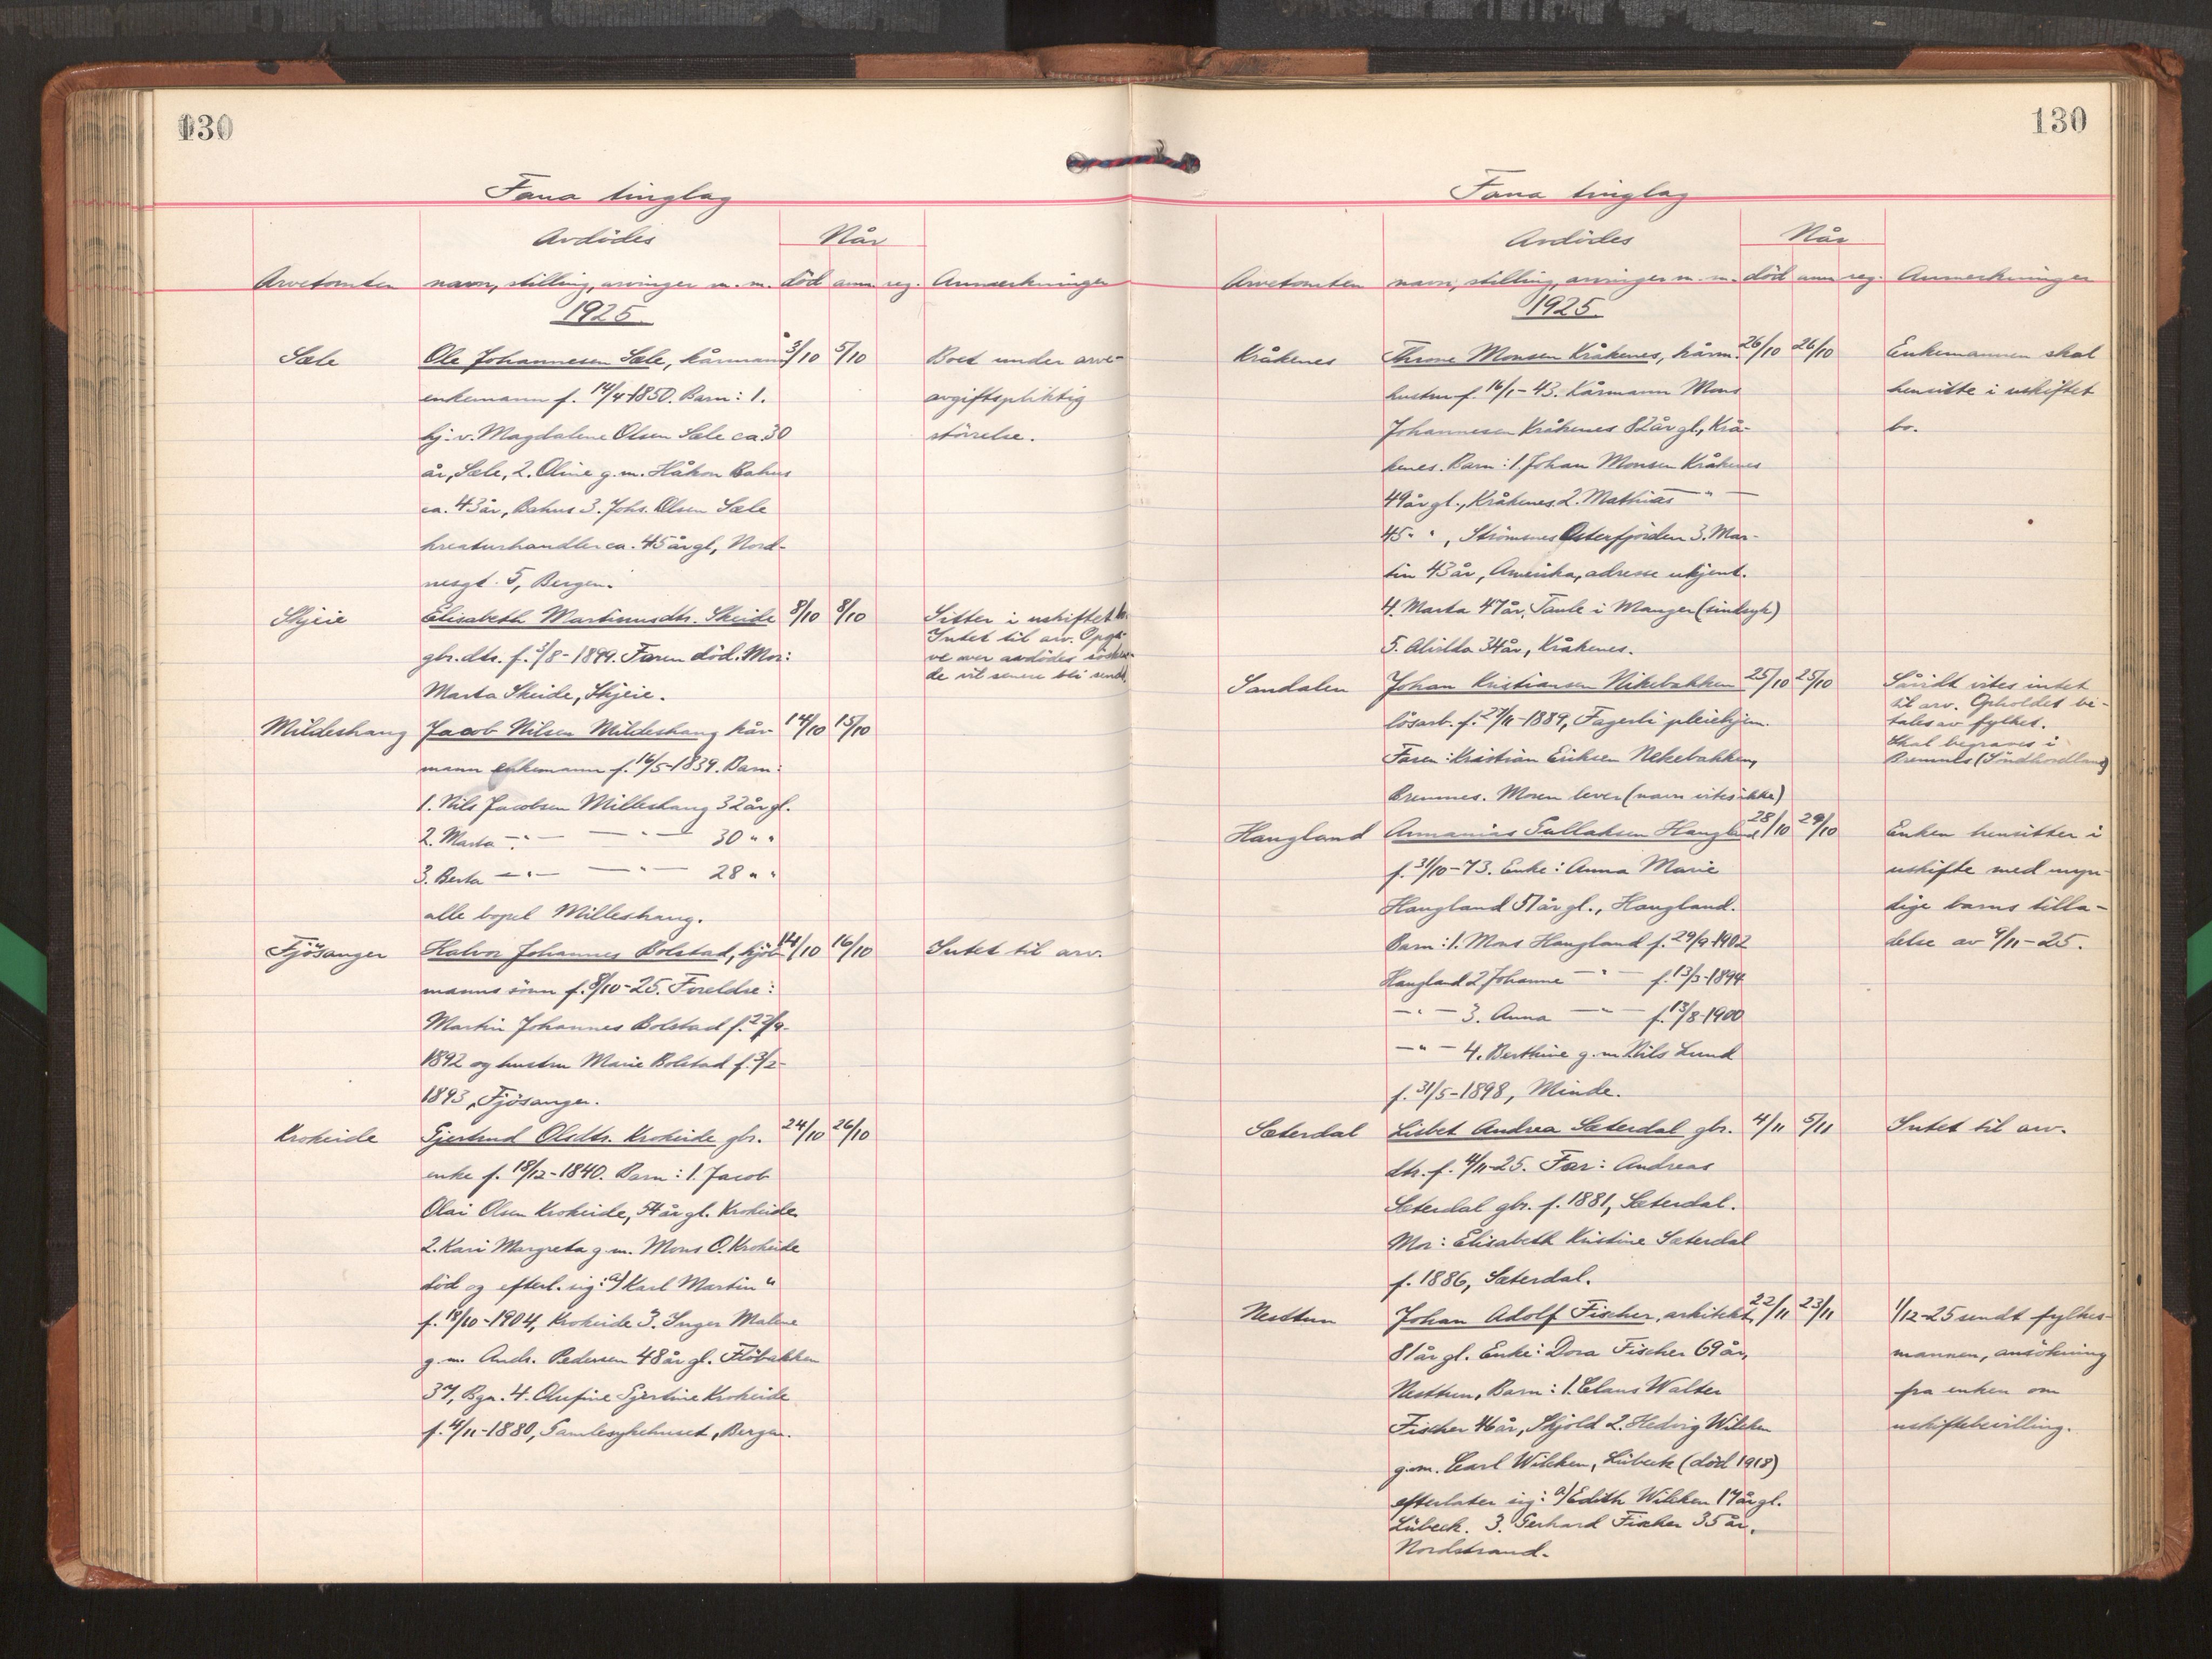 130
Fana tinglag
Avdödes
Når
Arvetomten navn, stilling, arvinger m.m. död anm. reg. Anmerkninger
1925
Sæle Ole Johannesen Sæle, kårmann 3/10 5/10 Boet under arve-
enkemann f. 14/4-1850. Barn: 1. avgiftspliktig
hj. v. Magdalene Olsen Sæle ca. 30 störrelse.
år, Sæle, 2. Oline g.m. Håkon Bahus
ca. 43 år, Bahus 3. Johs. Olsen Sæle
kreaturhandler ca. 45 år gl, Nord-
nesgt. 5, Bergen.
Skjeie Elisabeth Martinusdtr. Skeide 8/10 8/10 Sitter i uskiftet bo.
Intet til arv. Opgå-
gbr. dtr. f. 3/8-1899. Faren död. Mor: ve over avdödes sösken-
de vil senere bli sendt.
Marta Skeide, Skjeie.
Mildeshaug Jacob Nilsen Mildeshaug kår- 14/10 15/10
mann enkemann f. 16/5-1839. Barn:
1. Nils Jacobsen Milleshaug 32 år gl.
2. Marta —"— —"— 30 " "
3. Berta —"— —"— 28 " "
alle bopel Milleshaug.
Fjösanger Halvor Johannes Bolstad, kjöb- 14/10 16/10 Intet til arv.
manns sönn f. 8/10-25. Foreldre:
Martin Johannes Bolstad f. 22/9-
1892 og hustru Marie Bolstad f. 3/2-
1893, Fjösanger.
Krokeide Gjertrud Olsdtr. Krokeide gbr. 24/10 26/10
enke f. 18/12-1840. Barn: 1. Jacob
Olai Olsen Krokeide, 54 år gl. Krokeide
2. Kari Margreta g.m. Mons O. Krokeide
död og efterl. sig: a) Karl Martin "
f. 18/10-1904, Krokeide 3. Inger Malene
g.m. Ands. Pedersen 48 år gl. Flöbakken
37, Bgn. 4. Olufine Gjertine Krokeide
f. 4/11-1880, Samlesykehuset, Bergen.
130
Fana tinglag
Avdödes
Når
Arvetomten navn, stilling, arvinger m.m. död anm reg. Anmerkninger
1925
Kråkenes Throne Monsen Kråkenes, kårm. 26/10 26/10 Enkemannen skal
hustru f. 16/1-43. Kårmann Mons hensitte i uskiftet
Johannesen Kråkenes 82 år gl., Krå- bo.
kenes. Barn: 1. Johan Monsen Kråkenes
49 år gl., Kråkenes 2. Mathias —"—
45 " ", Strömsnes Osterfjorden 3. Mar-
tin 43 år, Amerika, adresse ukjent.
4. Marta 47 år, Taule i Manger (sindsyk)
5. Alvilda 34 år, Kråkenes.
Sandalen Johan Kristiansen Nikebakken 25/10 25/10 Såvidt vites intet
til arv. Opholdet be-
lösarb. f. 27/11-1889, Fagerli pleiehjem. tales av fylket.
Skal begraves i
Faren: Kristian Eriksen Nekebakken, Bremnes (Söndhordland)
Bremnes. Moren lever (navn vites ikke)
Haugland Annanias Tollaksen Haugland 28/10 29/10 Enken hensitter i
f. 31/10-73. Enke: Anna Marie uskifte med myn-
Haugland 51 år gl., Haugland. dige barns tilla-
Barn: 1. Mons Haugland f. 29/9-1902 delse av 9/11-25.
Haugland 2 Johanne —"— f. 13/3-1894
—"— 3. Anna —"— f. 13/8-1900
—"— 4. Berthine g.m. Nils Lund
f. 31/5-1898, Minde.
Sæterdal Lisbet Andrea Sæterdal gbr. 4/11 5/11 Intet til arv.
dtr. f. 4/11-25. Far: Andreas
Sæterdal gbr. f. 1881, Sæterdal.
Mor: Elisabeth Kristine Sæterdal
f. 1886, Sæterdal.
Nesttun Johan Adolf Fischer, arkitekt 22/11 23/11 1/12-25 sendt fylkes-
81 år gl. Enke: Dora Fischer 69 år, mannen, ansökning
Nesttun, Barn: 1. Claus Walter fra enken om
Fischer 46 år, Skjold 2. Hedvig Wilcken uskiftebevilling.
g.m. Carl Wilcken, Lübeck (död 1918)
efterlater sig: a) Edith Wilcken 17 år gl.
Lübeck. 3. Gerhard Fischer 35 år,
Nordstrand.